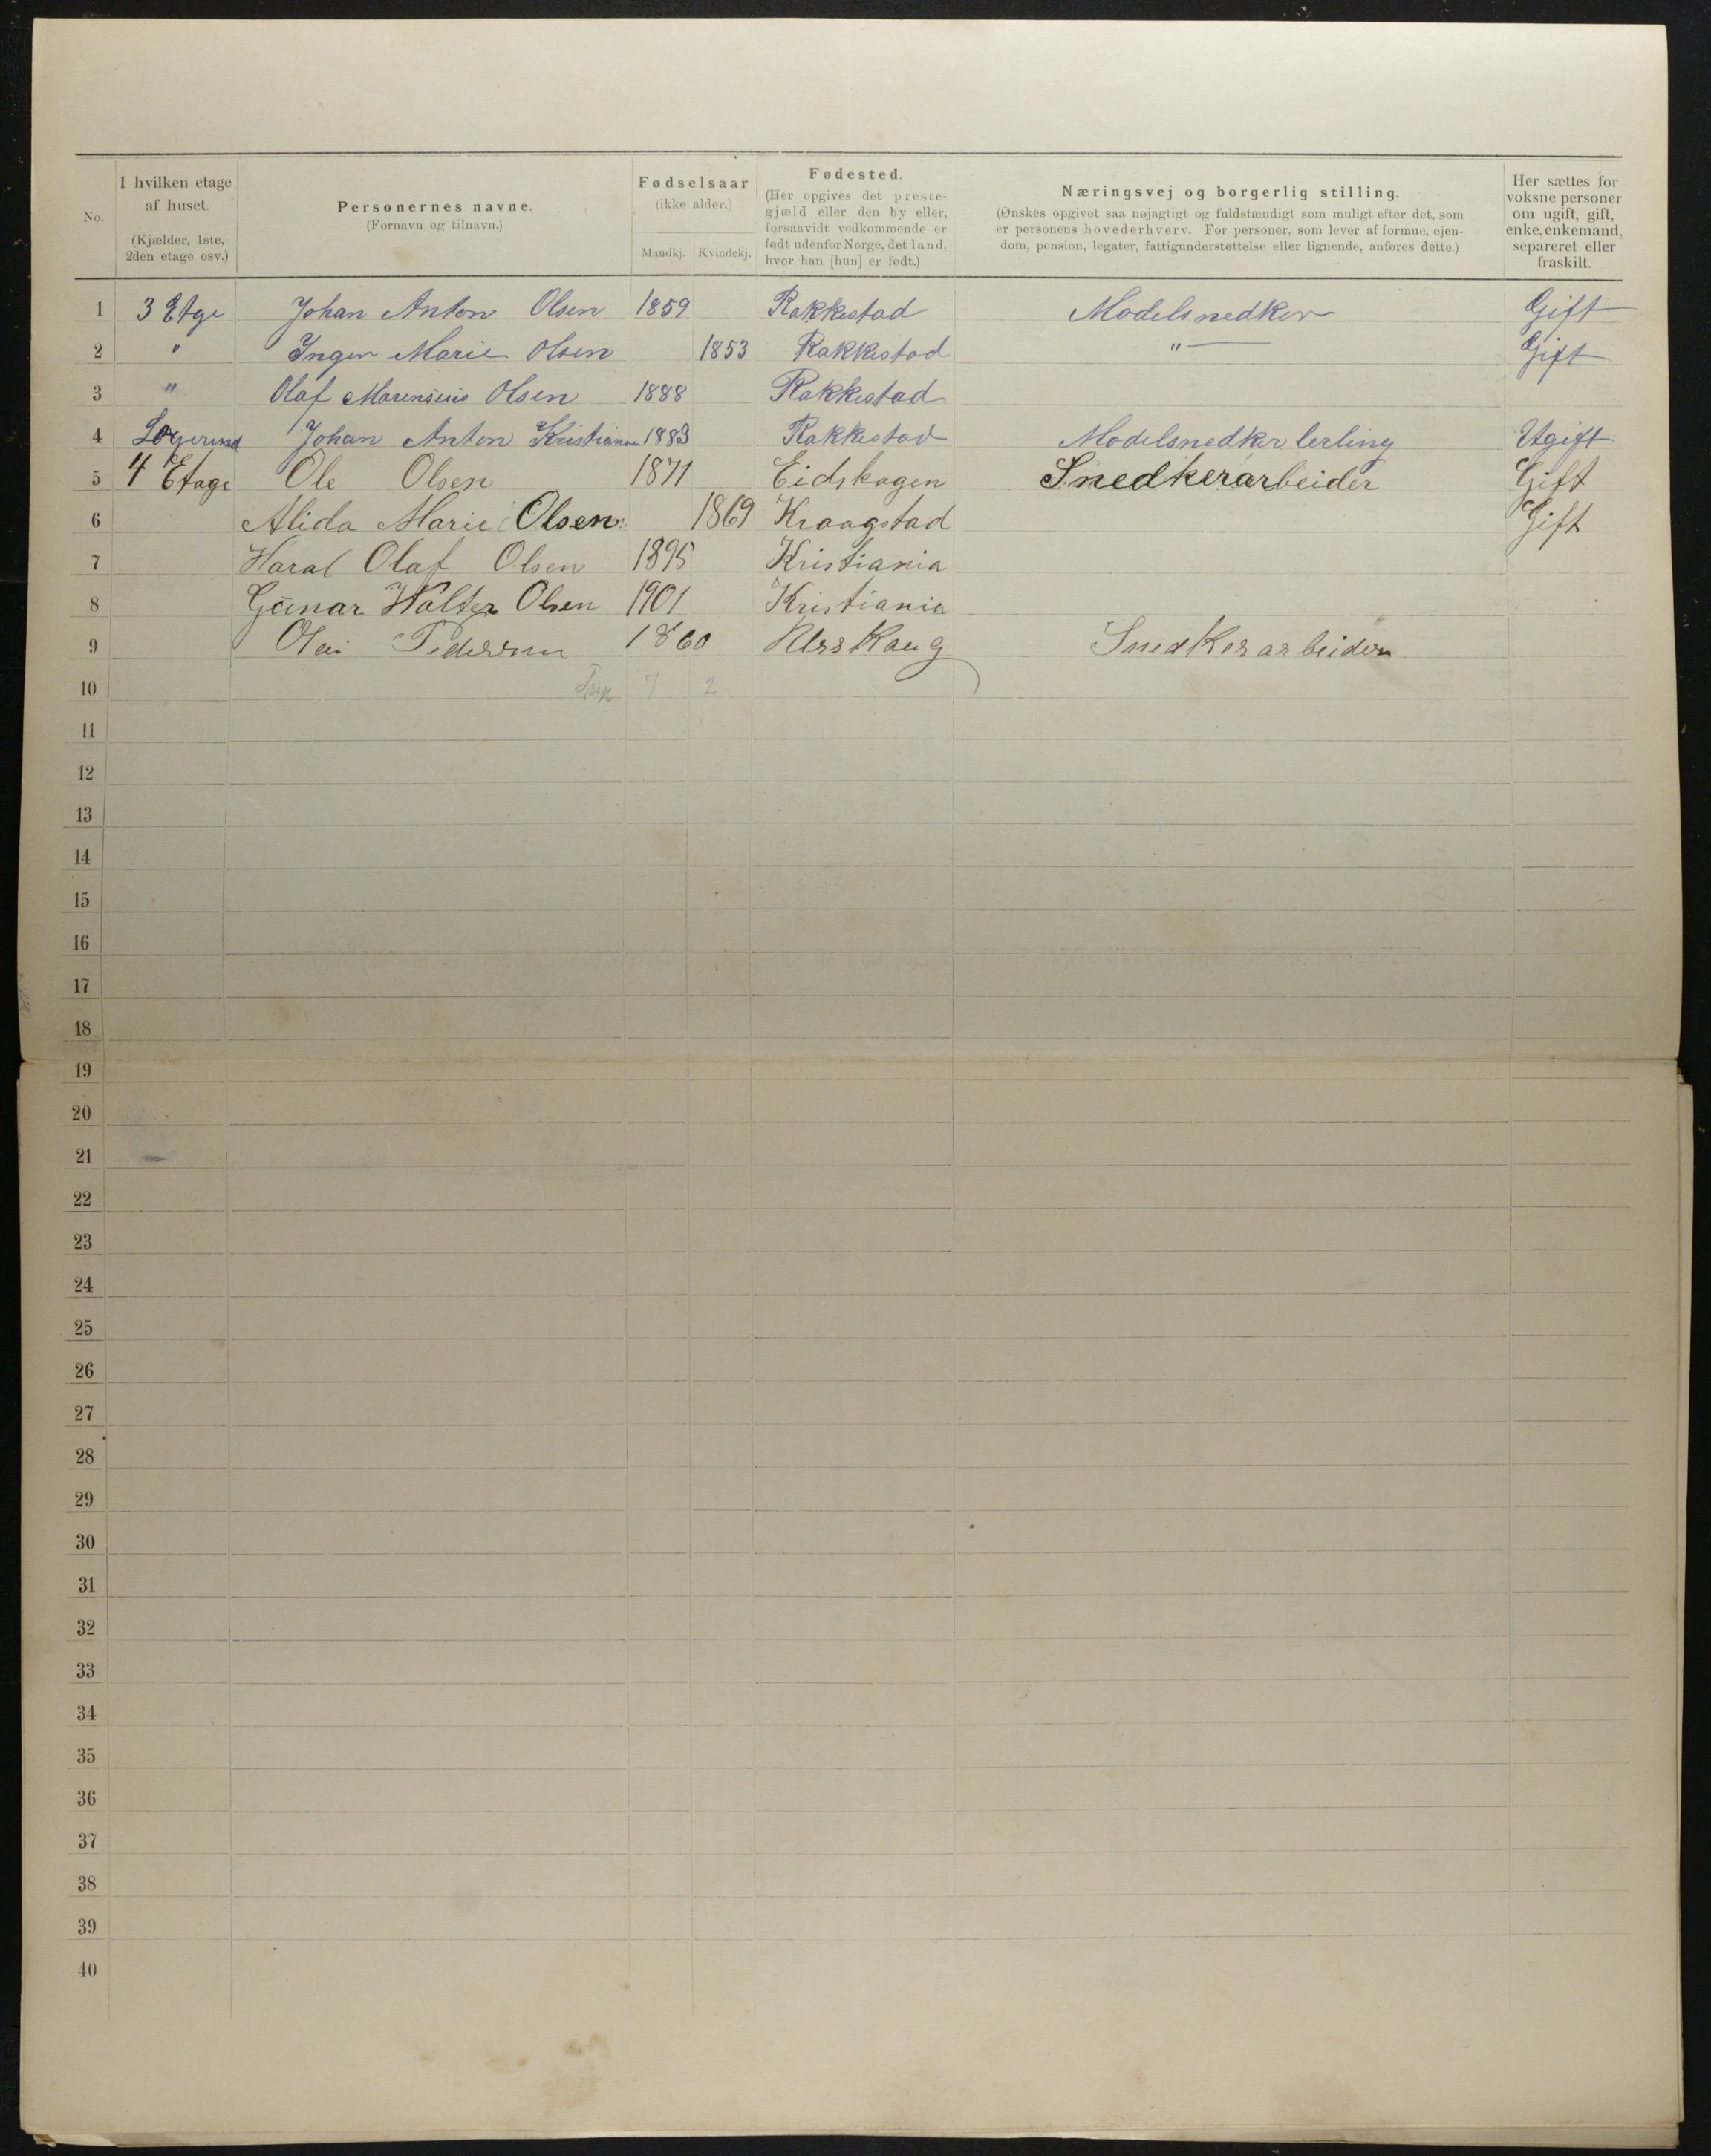 No.
I hvilken etage af huset.
(Kjælder, 1ste, 2den etage osv.)
Personernes navne.
(Fornavn og tilnavn.)
Fødselsaar
(ikke alder.)
Mandkj. Kvindekj.
Fødested.
(Her opgives det preste-
gjæld eller den by eller,
forsaavidt vedkommende er
født udenfor Norge, det land,
hvor han [hun] er født.)
Næringsvej og borgerlig stilling.
(Ønskes opgivet saa nøjagtigt og fuldstændigt som muligt efter det, som
er personens hovederhverv. For personer, som lever af formue, ejen-
dom, pension, legater, fattigunderstøttelse eller lignende, anføres dette.)
Her sættes for
voksne personer
om ugift, gift,
enke, enkemand,
separeret eller
fraskilt.
1 3 Etge Johan Anton Olsen 1859 Rakkestad Modelsnedker Gift
2 " Inger Marie Olsen 1853 Rakkestad " Gift
3 " Olaf Marensius Olsen 1888 Rakkestad
4 Logerend Johan Anton 1883 Rakkestad Modelsnedker lerling Ugift
5 4 Etage Ole Olsen 1871 Eidskogen Snedkerarbeider Gift
6 Alida Marie Olsen 1869 Kraagstad Gift
7 Haral Olaf Olsen 1895 Kristiania
8 Gunar Walter Olsen 1901 Kristiania
9 Pedersen 1860 Snedkerarbeider
10 7 2
11
12
13
14
15
16
17
18
19
20
21
22
23
24
25
26
27
28
29
30
31
32
33
34
35
36
37
38
39
40